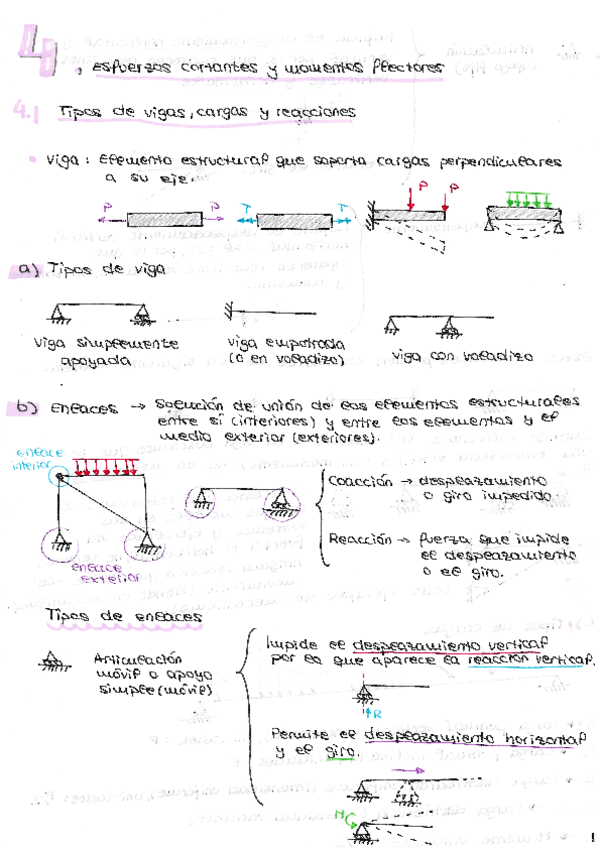 4, esfuerzos cortantes y momentos flectores
4.1 Tipos de vigas, cargas y reacciones
• Viga: Elemento estructural que soporta cargas perpendiculares
a su eje.
P P T T P P
a) Tipos de viga
viga simplemente
apoyada
viga empotrada
(o en voladizo)
viga con voladizo
b) Enlaces → Solución de unión de los elementos estructurales
entre sí (interiores) y entre los elementos y el
medio exterior (exteriores).
enlace
interior
enlace
exterior
Coacción → desplazamiento
o giro impedido
Reacción → fuerza que impide
el desplazamiento
o el giro.
Tipos de enlaces
Articulación
móvil o apoyo
simple (móvil)
Impide el desplazamiento vertical
por lo que aparece la reacción vertical.
R
Permite el desplazamiento horizontal
y el giro.
M
1